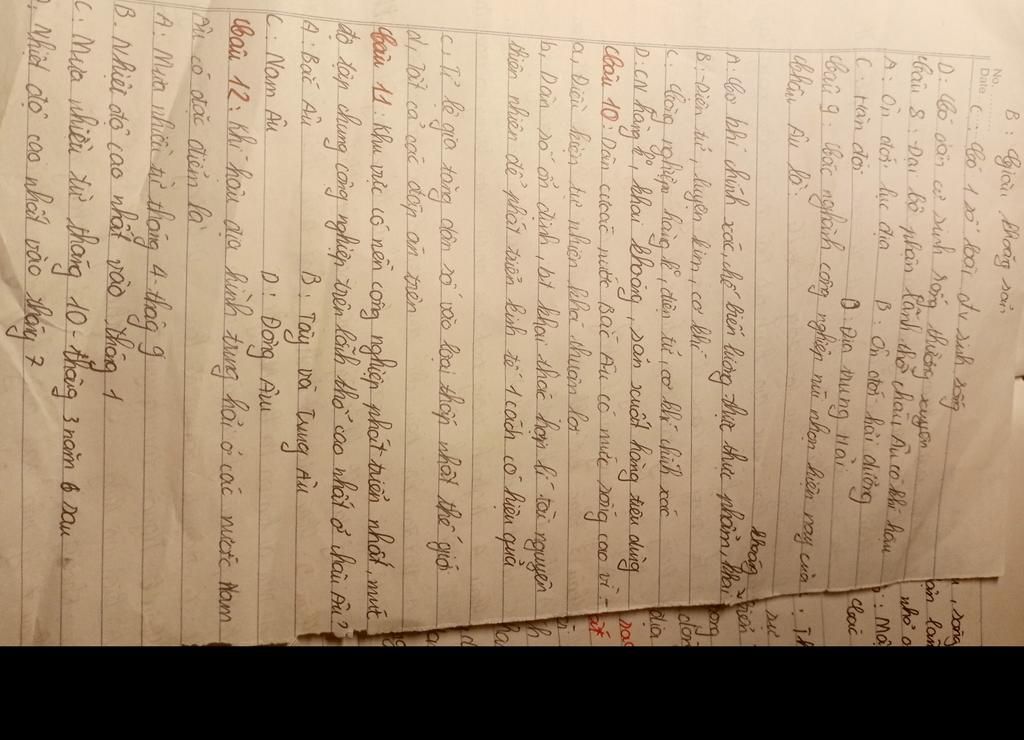 B: Giàu khoáng sản
No.
Date C: Có 1 số loài đv sinh sống
D: Có dân cư sinh sống thường xuyên
Câu 8: Đại bộ phận lãnh thổ châu Âu có khí hậu
A: Ôn đới lục địa B: Ôn đới hải dương
C: Hàn đới D: Địa trung Hải
Câu 9: Các nghành công nghiệp mũi nhọn hiện nay của
châu Âu là:
A. Cơ khí chính xác, chế biến lương thực thực phẩm khai khoáng
B. Điện tử, luyện kim, cơ khí
C. Công nghiệp hàng k, điện tử cơ khí chính xác
D. CN hàng k, khai khoáng, sản xuất hàng tiêu dùng
Câu 10: Dân cư các nước Bắc Âu có mức sống cao vì
a, Điều kiện tự nhiên khá thuận lợi
b, Dân số ổn định, bt khai thác hợp lí tài nguyên
thiên nhiên để phát triển kinh tế 1 cách có hiệu quả
c, Tỉ lệ gia tăng dân số vào loại thấp nhất thế giới
d, Tất cả các đáp án trên
Câu 11: Khu vực có nền công nghiệp phát triển nhất, mức
độ tập chung công nghiệp trên lãnh thổ cao nhất ở châu Âu?
A: Bắc Âu B: Tây và Trung Âu
C: Nam Âu D: Đông Âu
Câu 12: Khí hậu địa hình trung hải ở các nước Nam
Âu có đặc điểm là
A: Mưa nhiều từ tháng 4 - tháng 9
B. Nhiệt độ cao nhất vào tháng 1
C. Mưa nhiều từ tháng 10 - tháng 3 năm sau
D. Nhiệt độ cao nhất vào tháng 7